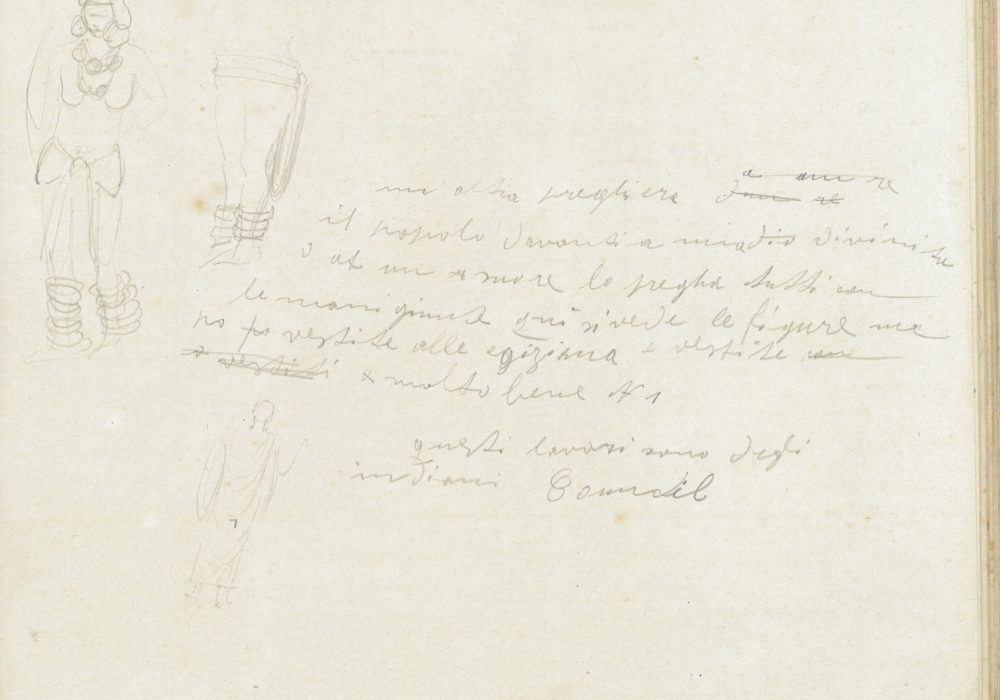 un altra preghiera a amore
il popolo davanti a divinita
o at un amore lo pregha tutti con
le mani giunte qui si vede le figure ma
no vestite alle egiziana e vestite
e vestiti e molto bene N 1
questi lavori sono degli
indiani Council
7